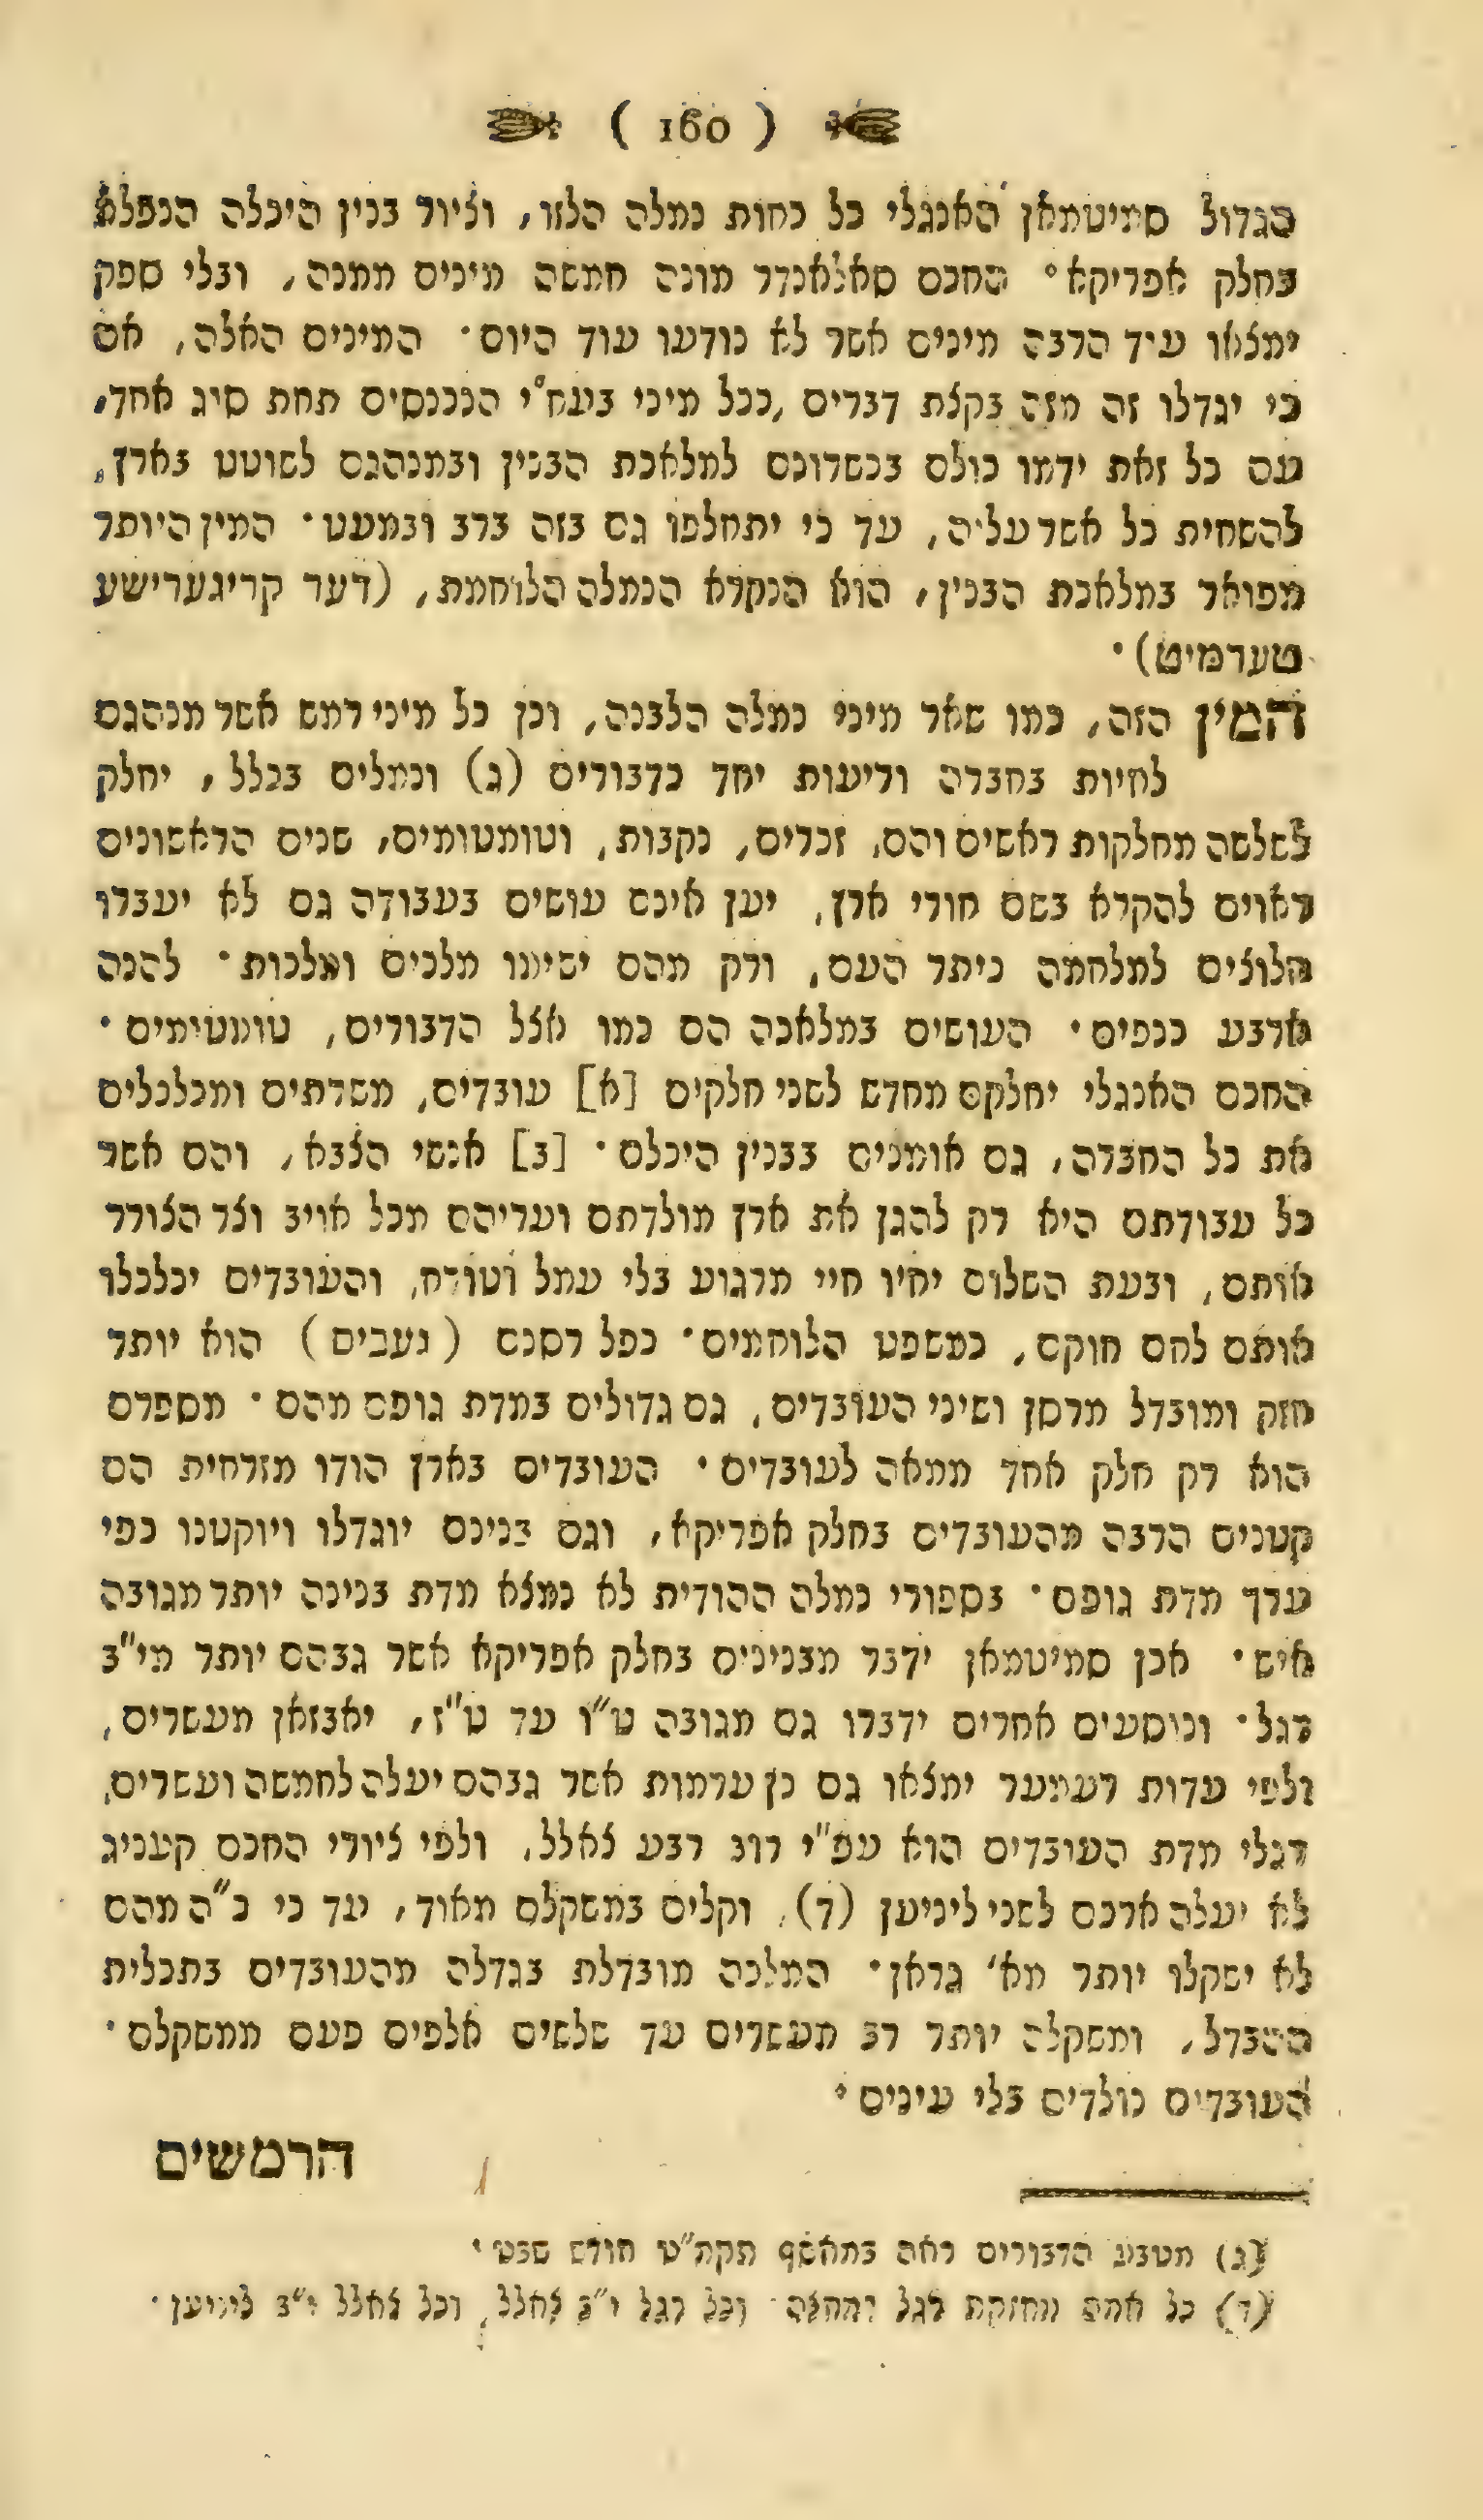 ( 160 )
הגדול סמיטמאן האנגלי כל כחות נמלה הלזו, וציור בנין היכלה הנפלא
בחלק אפריקא· החכם סאלאנדר מונה חמשה מינים ממנה, ובלי ספק
ימצאו עוד הרבה מינים אשר לא נודעו עוד היום· המינים האלה, אם
כי יגדלו זה מזה בקצת דברים, ככל מיני בע״ח הנכנסים תחת סוג אחד,
עם כל זאת ידמו כולם בכשרונם למלאכת הבנין ובמנהגם לשוטט בארץ,
להשחית כל אשר עליה, עד כי יתחלפו גם בזה ברב ובמעט· המין היותר
מפואר במלאכת הבנין, הוא הנקרא הנמלה הלוחמת, (דער קריגערישע
טערמיט)·
המין הזה, כמו שאר מיני נמלה הלבנה, וכן כל מיני רמש אשר מנהגם
לחיות בחברה ודיעות יחד כדבורים (ג) ונמלים בכלל, יחלק
לשלשה מחלקות ראשים והם, זכרים, נקבות, וטומטומים, שנים הראשונים
ראוים להקרא בשם חורי ארץ, יען אינם עושים בעבודה גם לא יעברו
חלוצים למלחמה כיתר העם, ורק מהם ישימו מלכים ומלכות· להנה
ארבע כנפים· העושים במלאכה הם כמו אצל הדבורים, טומטומים·
החכם האנגלי יחלקם מחדש לשני חלקים [א] עובדים, משרתים ומכלכלים
את כל החברה, גם אומנים בבנין היכלם· [ב] אנשי הצבא, והם אשר
כל עבודתם היא רק להגן את ארץ מולדתם ועריהם מכל אויב וצר הצורר
אותם, ובעת השלום יחיו חיי מרגוע בלי עמל וטורח, והעובדים יכלכלו
אותם לחם חוקם, כמשפט הלוחמים· כפל רסנם (געבים) הוא יותר
חזק ומובדל מרסן ושיני העובדים, גם גדולים במדת גופם מהם· מספרם
הוא רק חלק אחד ממאה לעובדים· העובדים בארץ הודו מזרחית הם
קטנים הרבה מהעובדים בחלק אפריקא, וגם בנינם יוגדלו ויוקטנו כפי
ערך מדת גופם· בספורי נמלה ההודית לא נמצא מדת בנינה יותר מגובה
איש· אכן סמיטמאן ידבר מבנינים בחלק אפריקא אשר גבהם יותר מי״ב
רגל· ונוסעים אחרים ידברו גם מגובה ט״ו עד ט״ז, יאבזאן מעשרים,
ולפי עדות דעמער ימצאו גם כן ערמות אשר גבהם יעלה לחמשה ועשרים,
רגלי מדת העובדים הוא עפ״י רוב רבע צאלל, ולפי ציורי החכם קעניג
לא יעלה ארכם לשני ליניען (ד), וקלים במשקלם מאוד, עד כי כ״ה מהם
לא ישקלו יותר מא׳ גראן· המלכה מובדלת בגדלה מהעובדים בתכלית
ההבדל, ומשקלה יותר רב מעשרים עד שלשים אלפים פעם ממשקלם·
העובדים נולדים בלי עינים·
הרמשים
(ג) מטבע הדבורים ראה במאסף תקמ״ט חודש שבט·
(ד) כל אמה מחזקת רגל ומחצה· וכל רגל י״ב צאלל, וכל צאלל י״ב ליניען·